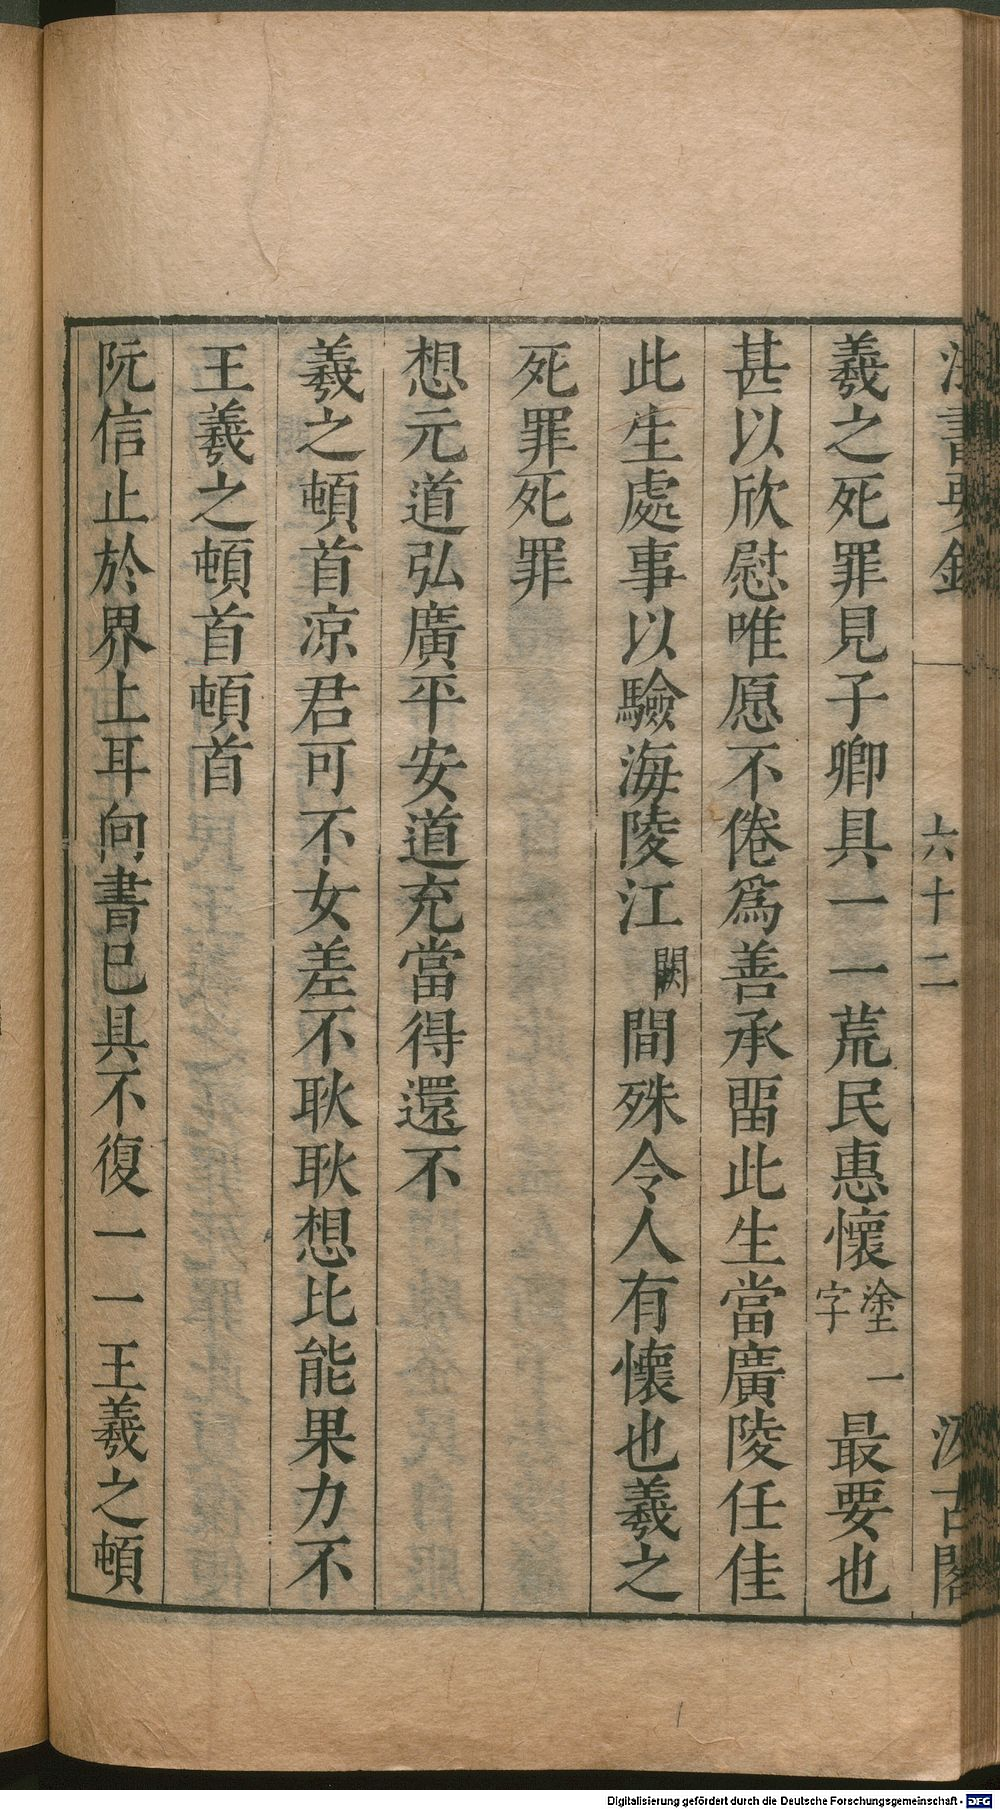 法書要錄
六十二
汲古閣
羲之死罪見子卿具一一荒民惠懷塗一字最要也
甚以欣慰唯愿不倦爲善承畱此生當廣陵任佳
此生處事以驗海陵江闕間殊令人有懷也羲之
死罪死罪
想元道弘廣平安道充當得還不
羲之頓首凉君可不女差不耿耿想比能果力不
王羲之頓首頓首
阮信止於界上耳向書巳具不復一一王羲之頓
Digitalisierung gefördert durch die Deutsche Forschungsgemeinschaft - DFG